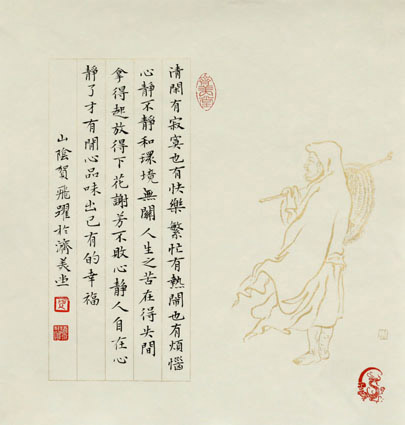 清閑有寂寞也有快樂繁忙有熱鬧也有煩惱
心靜不靜和環境無關人生之苦在得失間
拿得起放得下花謝芳不敗心靜人自在心
靜了才有閒心品味出已有的幸福
山陰賀飛躍於濟美堂